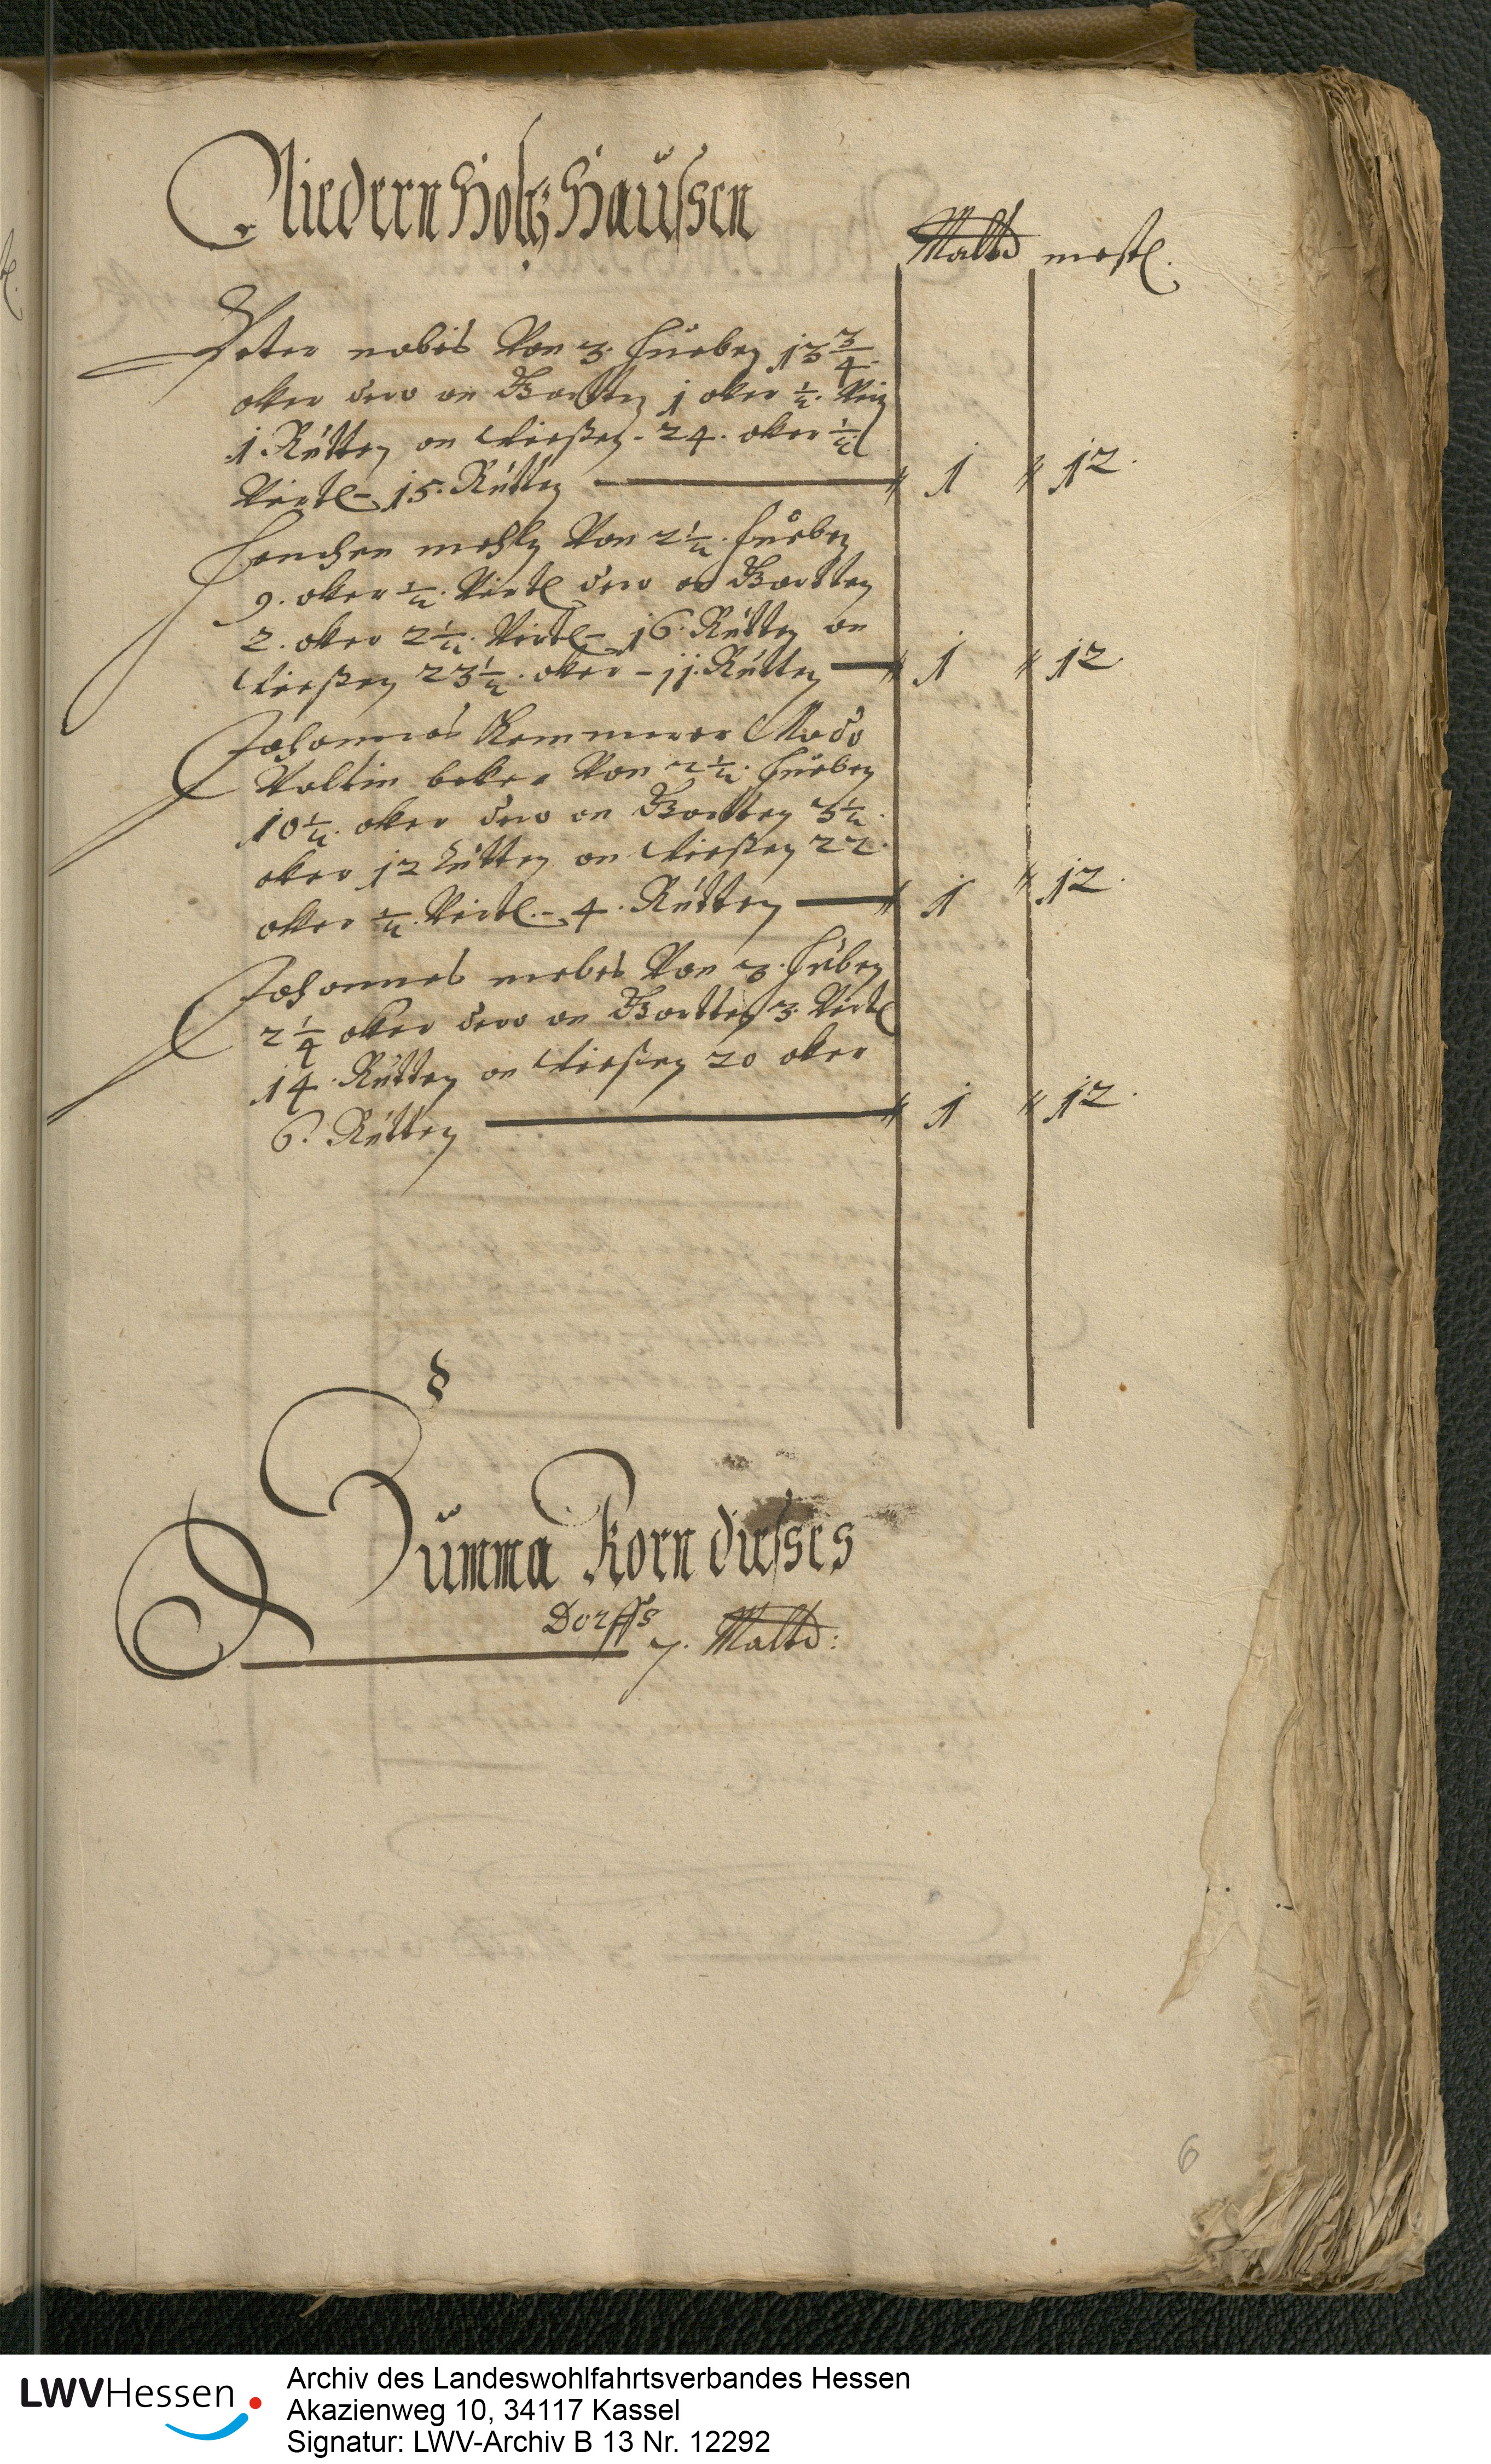 NiedernHoltzHaußen
Maltd mestl.
Peter nobis Von 3. Hueben 13 3/4.
aker dero an Gartten 1 aker 1/2. Vir
1. Rutten an Wießen - 24. aker 1/2
Virtl - 15. Rutten 1 12.
Henchen mohln Von 2 1/2. Hueben
9. aker 1/2. Virtl dero an Gartten
2. aker 2 1/2. Virtl - 16. Rutten an
Wießen 23 1/2. aker - 11. Rutten 1 12
Johannes Kemmerer Modo
Valtin beker Von 2 1/2. Hueben
10 1/2. aker dero an Gartten 3 1/2.
aker 12 Rutten an Wießen 22.
aker 1/2. Virtl. - 4. Rutten 1 12.
Johannes mebes Von 3. Huben
2 1/4 aker dero an Gartten 3. Virtl
14. Rutten an Wießen 20 aker
6. Rutten 1 12.
§
Summa Korn dießes
Dorffs 7. Maltd:
6
LWVHessen
Archiv des Landeswohlfahrtsverbandes Hessen
Akazienweg 10, 34117 Kassel
Signatur: LWV-Archiv B 13 Nr. 12292